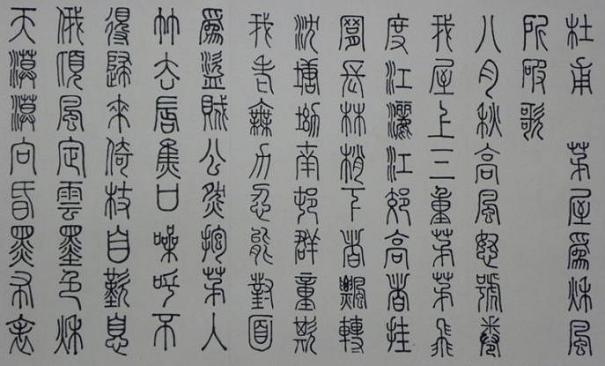 杜甫 茅屋爲秋風
所破歌
八月秋高風怒號卷
我屋上三重茅茅飛
度江灑江郊高者挂
罥長林梢下者飄轉
沈塘坳南邨群童欺
我老無力忍能對面
爲盜賊公然抱茅入
竹去唇焦口噪呼不
得歸來倚杖自歎息
俄頃風定雲墨色秋
天漠漠向昏黑布衾